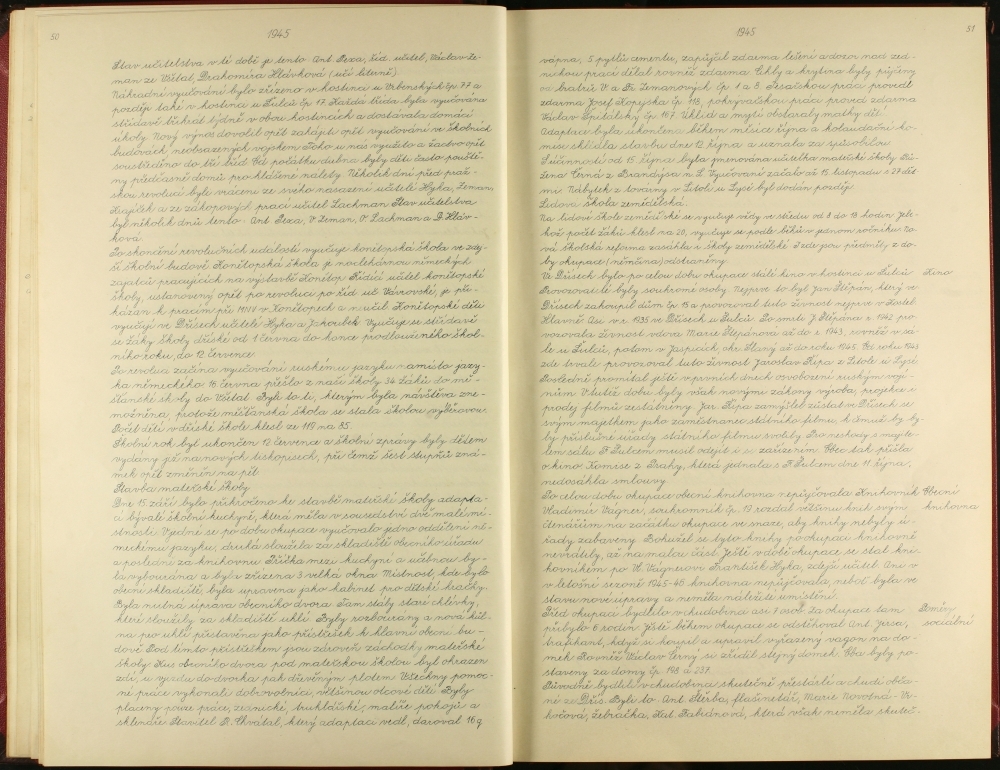 50
1945
Stav učitelstva v té době je tento: Ant. Pexa, říd. učitel, Václav Ze-
man ze Všetat, Drahomíra Hlávková (uč. literně).
Náhradní vyučování bylo zřízeno v hostinci u Vrbenských čp. 77 a
později také v hostinci u Šulců čp. 17. Každá třída byla vyučována
střídavě třikrát týdně v obou hostincích a dostávala domácí
úkoly. Nový výnos dovolil opět zahájit opět vyučování ve školních
budovách neobsazených vojskem. Toho u nás využito a žactvo opět
soustředěno do tří tříd. Od počátku dubna byly děti často pouště-
ny předčasně domů pro hlášené nálety. Několik dnů před praž-
skou revolucí byli vráceni ze svého nasazení učitelé Hyka, Zeman
Krajíček a ze zákopových prací učitel Lachman. Stav učitelstva
byl několik dnů tento: Ant. Pexa, V. Zeman, V. Lachman a D. Hláv-
ková.
Po skončení revolučních událostí vyučuje konětopská škola ve zdej-
ší školní budově. Konětopská škola je noclehárnou německých
zajatců pracujících na výstavbě Konětop. Řídící učitel konětopské
školy, ustanovený opět po revoluci po říd. uč. Vávrovské, je při-
kázán k pracím při MNV v Konětopech a neučil. Konětopské děti
vyučují ve Dřísech učitelé Hyka a J. Koubek. Vyučuje se střídavě
se žáky školy dříské od 1. června do konce prodlouženého škol-
ního roku, do 12. července.
Po revoluci začíná vyučování ruskému jazyku namísto jazy-
ka německého. 18. června přešlo z naší školy 34 žáků do mě-
šťanské školy do Všetat. Byli to ti, kterým byla návštěva zne-
možněna, protože měšťanská škola se stala školou výběrovou.
Počet dětí v dříské škole klesl ze 119 na 85.
Školní rok byl ukončen 12. července a školní zprávy byly dětem
vydány již na nových tiskopisech, při čemž šest stupňů zná-
mek opět změněn na pět.
Stavba mateřské školy
Dne 15. září bylo přikročeno ke stavbě mateřské školy adapta-
cí bývalé školní kuchyně, která měla v sousedství dvě malé mí-
stnosti. V jedné se po dobu okupace vyučovalo jedno oddělení ně-
meckému jazyku, druhá sloužila za skladiště obecního úřadu
a poslední za knihovnu. Příčka mezi kuchyní a učebnou by-
la vybourána a byla zřízena 3 velká okna. Místnost, kde bylo
obecní skladiště, byla upravena jako kabinet pro dětské hračky.
Byla nutná úprava obecního dvora. Tam stály staré chlévky,
které sloužily za skladiště uhlí. Byly rozbourány a nová kůl-
na pro uhlí přistavena jako přístřešek k hlavní obecní bu-
dově. Pod tímto přístřeškem jsou zároveň záchodky mateřské
školy. Kus obecního dvora pod mateřskou školou byl ohrazen
zdí, u vjezdu do dvorka pak dřevěným plotem. Všechny pomoc-
né práce vykonali dobrovolníci, většinou otcové dětí. Byly
placeny pouze práce, zednické, truhlářské, malíře pokojů a
sklenáře. Stavitel R. Chvátal, který adaptaci vedl, daroval 16 q
1945
51
vápna, 5 pytlů cementu, zapůjčil zdarma lešení a dozor nad zed-
nickou prací dělal rovněž zdarma. Cihly a krytina byly půjčeny
od bratří V. a Fr. Zemanových čp. 1 a 8. Tesařskou práci provedl
zdarma Josef Kopejska čp. 118, pokrývačskou práci proved zdarma
Václav Špitálský čp. 167. Úklid a mytí obstaraly matky dětí.
Adaptace byla ukončena během měsíce října a kolaudační ko-
mise shlédla stavbu dne 12. října a uznala za způsobilou.
S účinností od 15. října byla jmenována učitelka mateřské školy Rů-
žena Černá z Brandýsa n. L. Vyučování začalo až 15. listopadu s 27 dět-
mi. Nábytek z továrny v Litoli u Lysé byl dodán později.
Lidová škola zemědělská.
Na lidové škole zemědělské se vyučuje vždy ve středu od 8 do 18 hodin. Jeli-
kož počet žáků klesl na 20, vyučuje se podle běhů v jednom ročníku. No-
vá školská reforma zasáhla i školy zemědělské. I zde jsou předměty z do-
by okupace (němčina) odstraněny.
Kino
Ve Dřísech bylo po celou dobu okupace stálé kino v hostinci u Šulců.
Provozovateli byly soukromé osoby. Nejprve to byl Jan Štěpán, který ve
Dřísech zakoupil dům čp. 15 a provozoval tuto živnost nejprve v Kostel.
Hlavně. Asi v r. 1935 ve Dřísech u Šulců. Po smrti J. Štěpána r. 1942 pro-
vozovala živnost vdova Marie Štěpánová až do r. 1943, rovněž v sá-
le u Šulců, potom v Jaspicích okr. Slaný až do roku 1945. Od roku 1943
zde trvale provozoval tuto živnost Jaroslav Řípa z Litole u Lysé.
Posledně promítal ještě v prvních dnech osvobození ruským vojí-
nům. V tutéž dobu byly však novými zákony výroba, projekce i
prodej filmů zestátněny. Jar. Řípa zamýšlel zůstat ve Dřísech se
svým majetkem jako zaměstnanec státního filmu, k čemuž by by-
ly příslušné úřady státního filmu svolily. Pro neshody s majite-
lem sálu F. Šulcem musil odejít i se zařízením. Obec tak přišla
o kino. Komise z Prahy, která jednala s F. Šulcem dne 11. října,
nedosáhla smlouvy.
Obecní
knihovna
Po celou dobu okupace obecní knihovna nepůjčovala. Knihovník
Vladimír Vagner, soukromník čp. 19 rozdal většinu knih svým
čtenářům na začátku okupace ve snaze, aby knihy nebyly ú-
řady zabaveny. Bohužel se tyto knihy po okupaci knihovně
nevrátily, až na malou část. Ještě v době okupace se stal kni-
hovníkem po Vl. Vágnerovi František Hyka, zdejší učitel. Ani v
v letošní sezoně 1945-46 knihovna nepůjčovala, neboť byla ve
stavu nové úpravy a neměla náležité umístění.
Poměry
sociální
Před okupací bydlelo v chudobinci asi 7 osob. Za okupace tam
přibylo 6 rodin. Ještě během okupace se odstěhoval Ant. Jersa,
trafikant, když si koupil a upravil vyřazený vagon na do-
mek. Rovněž Václav Černý si zřídil stejný domek. Oba byly po-
staveny za domy čp. 198 a 237.
Původně bydleli v chudobinci skutečně přestárlí a chudí obča-
né ze Dřís. Byli to: Ant. Štěrba, flašinetář, Marie Novotná - Vr-
kočová, žebračka, Kat. Fabiánová, která však neměla skuteč-